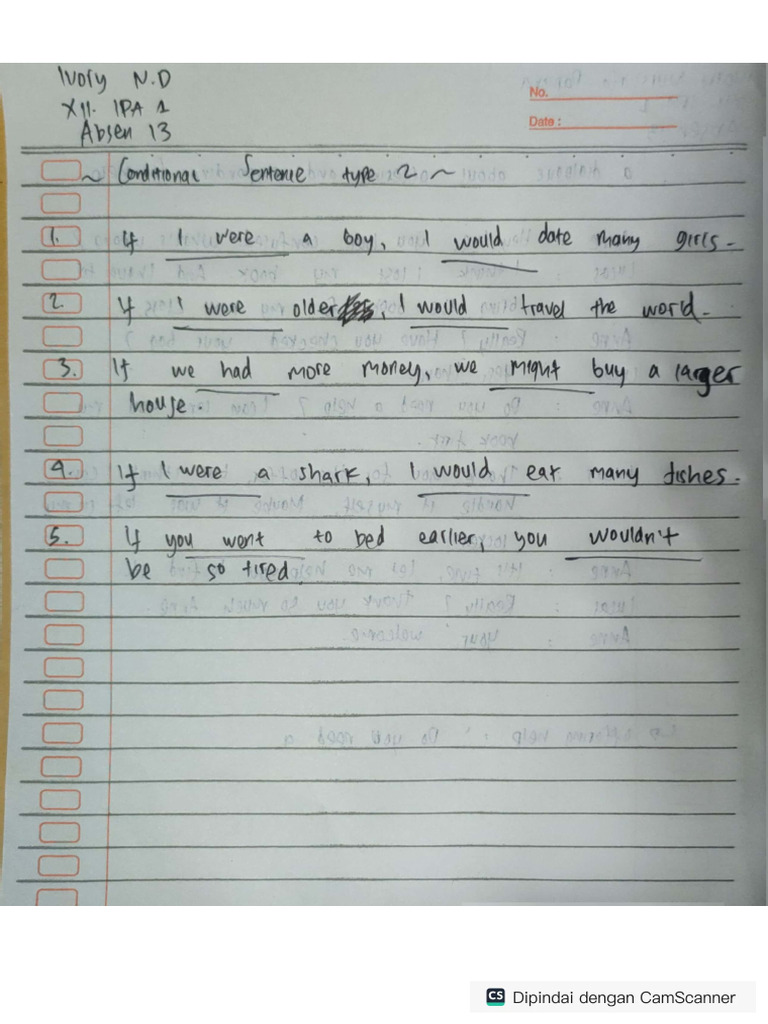 Ivory N.D
XII. IPA 1
Absen 13
No.
Date :
~ Conditional Sentence type 2 ~
1. If I were a boy, I would date many girls.
2. If I were older, I would travel the world.
3. If we had more money, we might buy a larger
house.
4. If I were a shark, I would eat many dishes.
5. If you went to bed earlier, you wouldn't
be so tired.
CS Dipindai dengan CamScanner